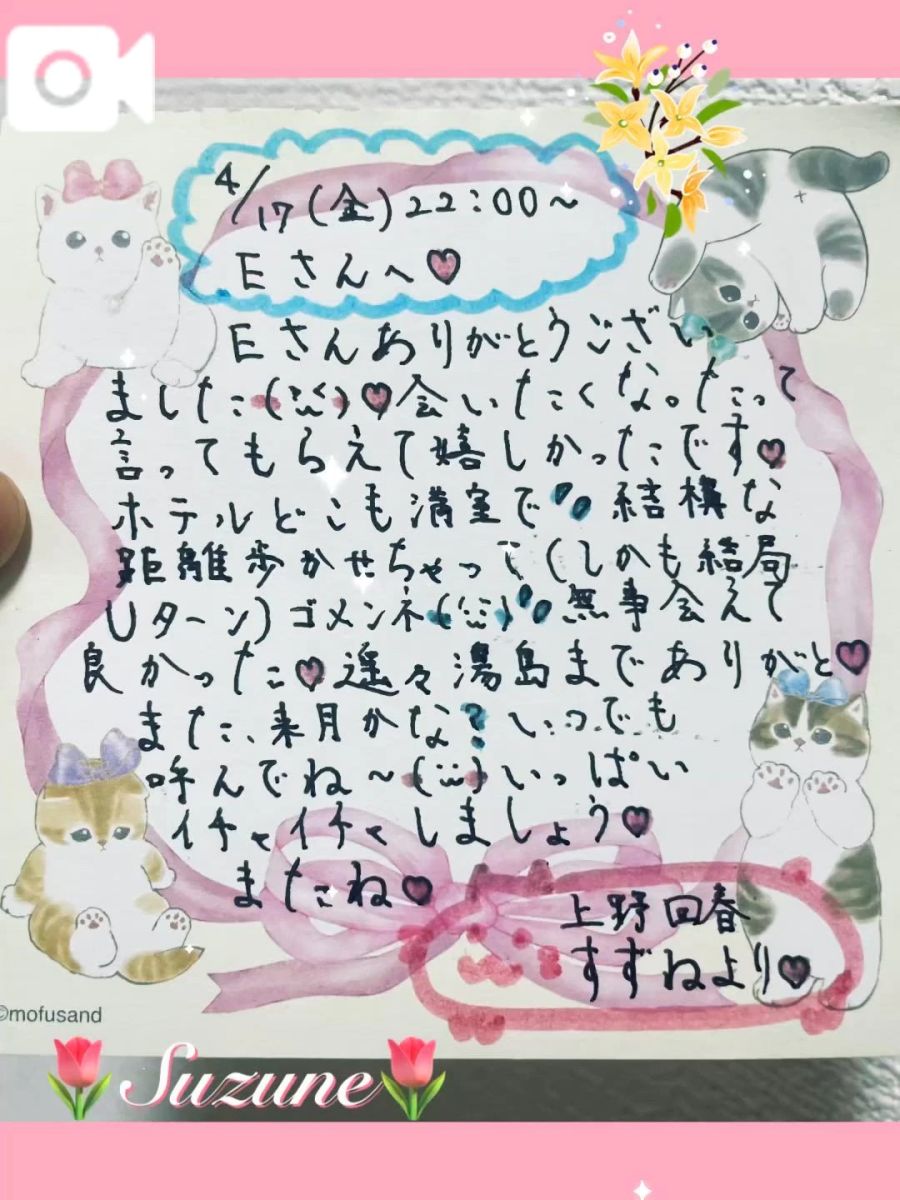 4/17(金)22:00~
Eさんへ♡
Eさんありがとうござい
ました(¨̮)♡会いたくな。たって
言ってもらえて嬉しかったです♡
ホテルどこも満室で 結構な
距離歩かせちゃって(しかも結局
Uターン)ゴメンネ(¨̮) 無事会えて
良かった♡遥々湯島までありがと♡
また、来月かな?いつでも
呼んでね~(¨̮)いっぱい
イチャイチャしましょう♡
またね♡
上野回春
すずねより♡
©mofusand
Suzune